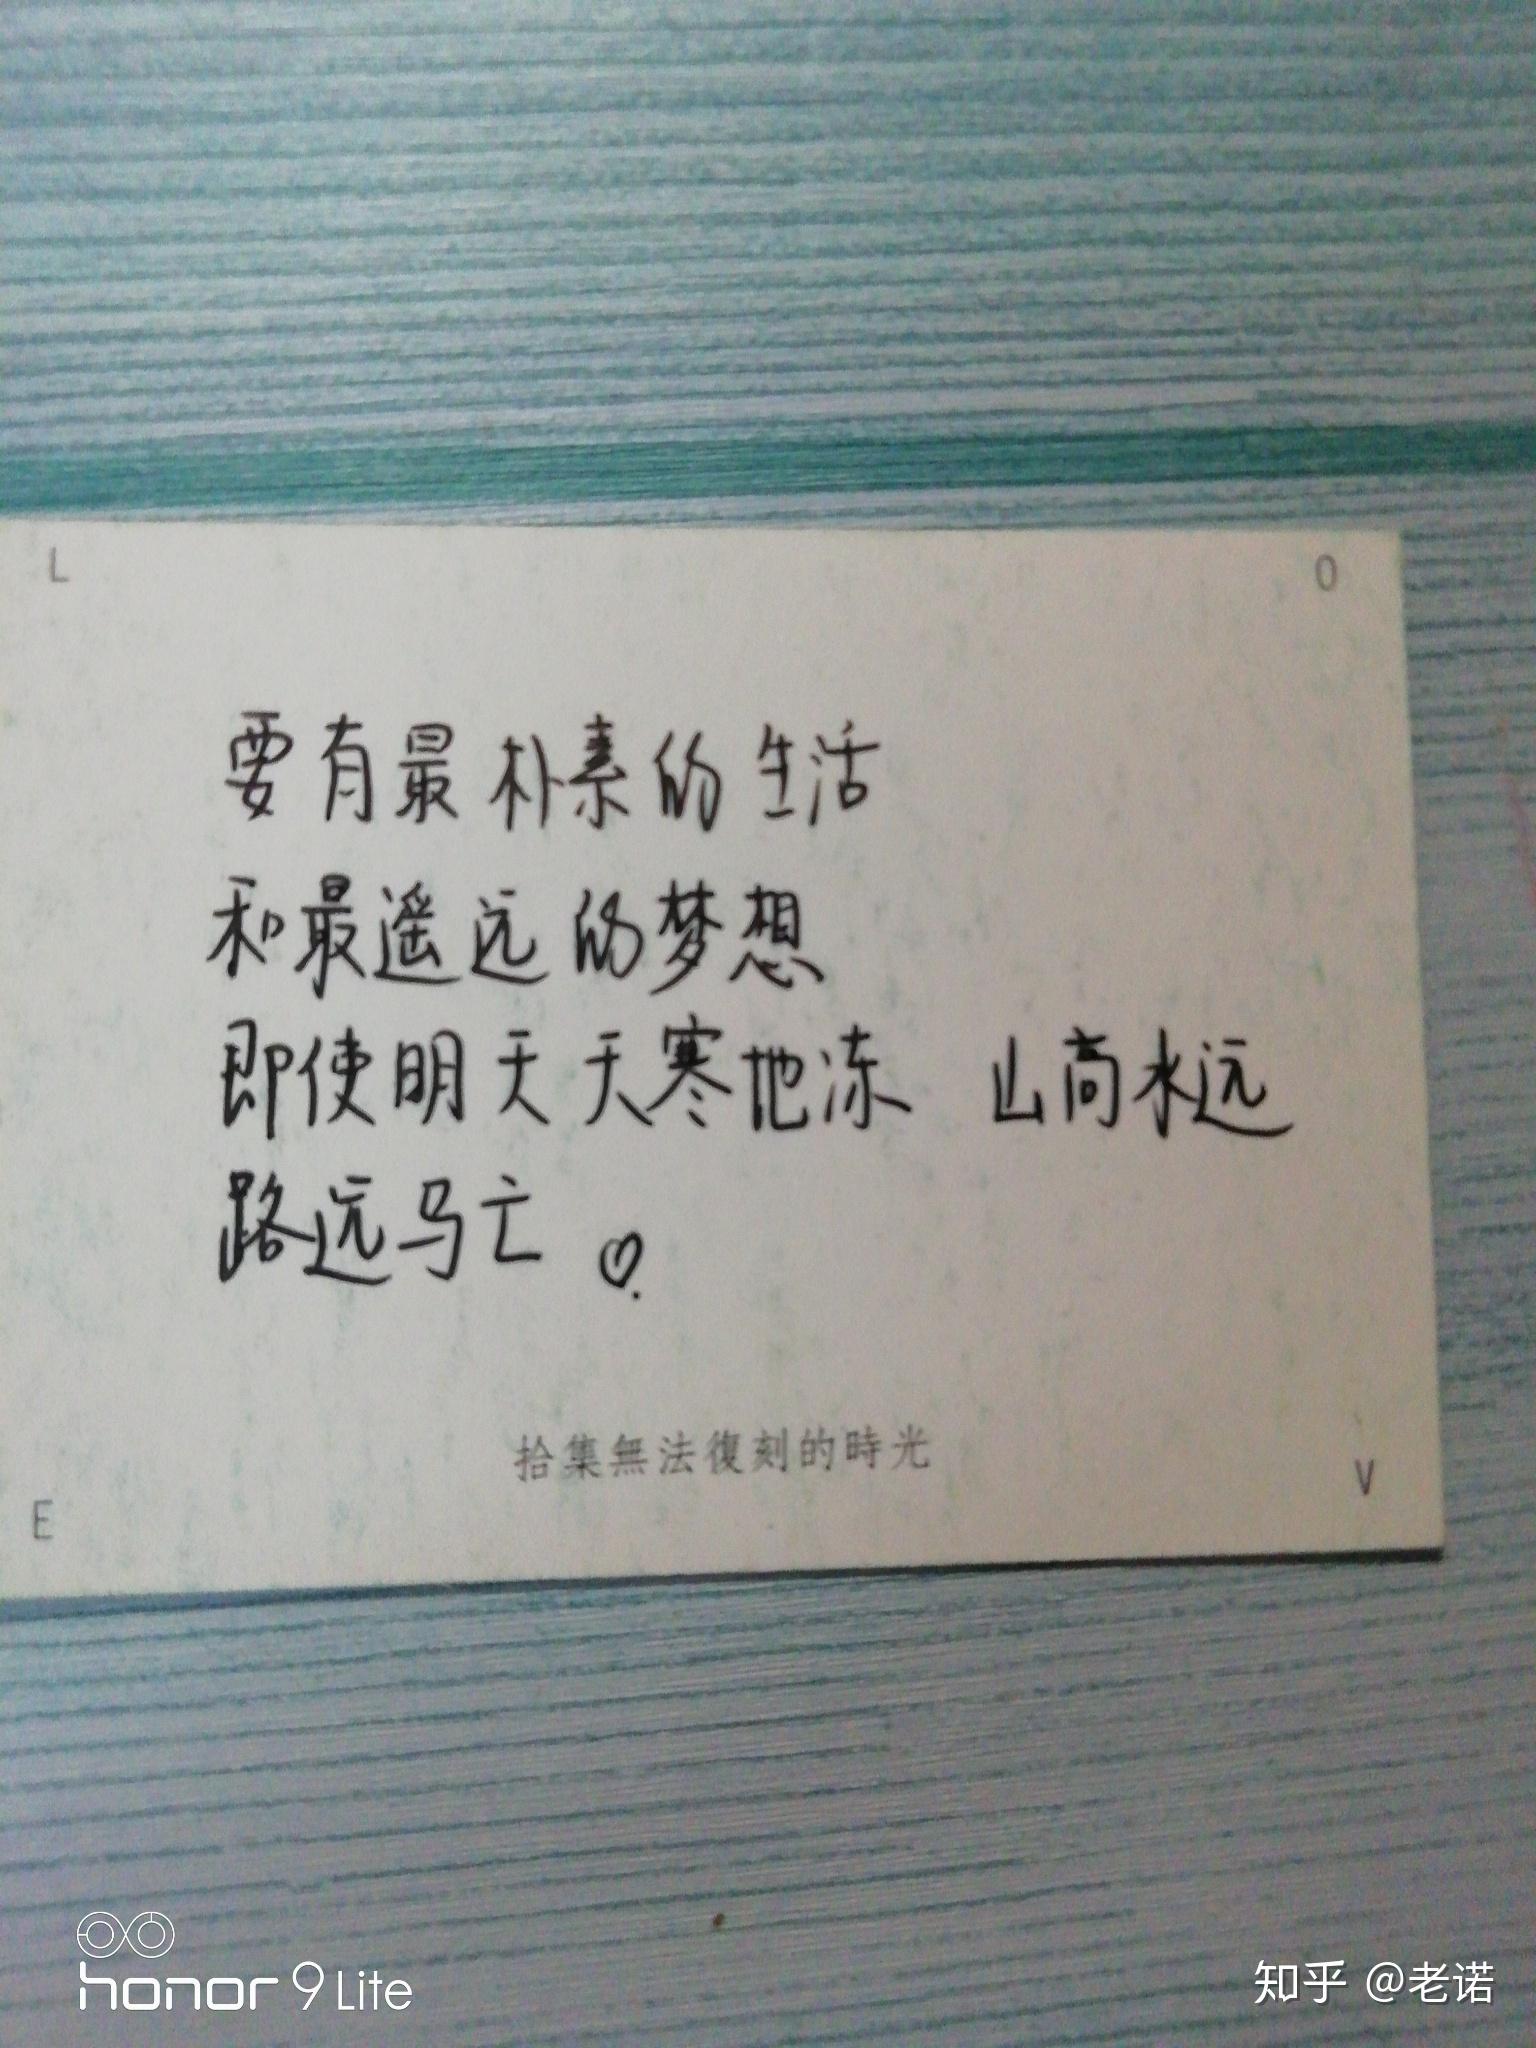 L O
要有最朴素的生活
和最遥远的梦想
即使明天天寒地冻 山高水远
路远马亡
拾集無法復刻的時光
E V
honor 9 Lite
知乎 @老诺